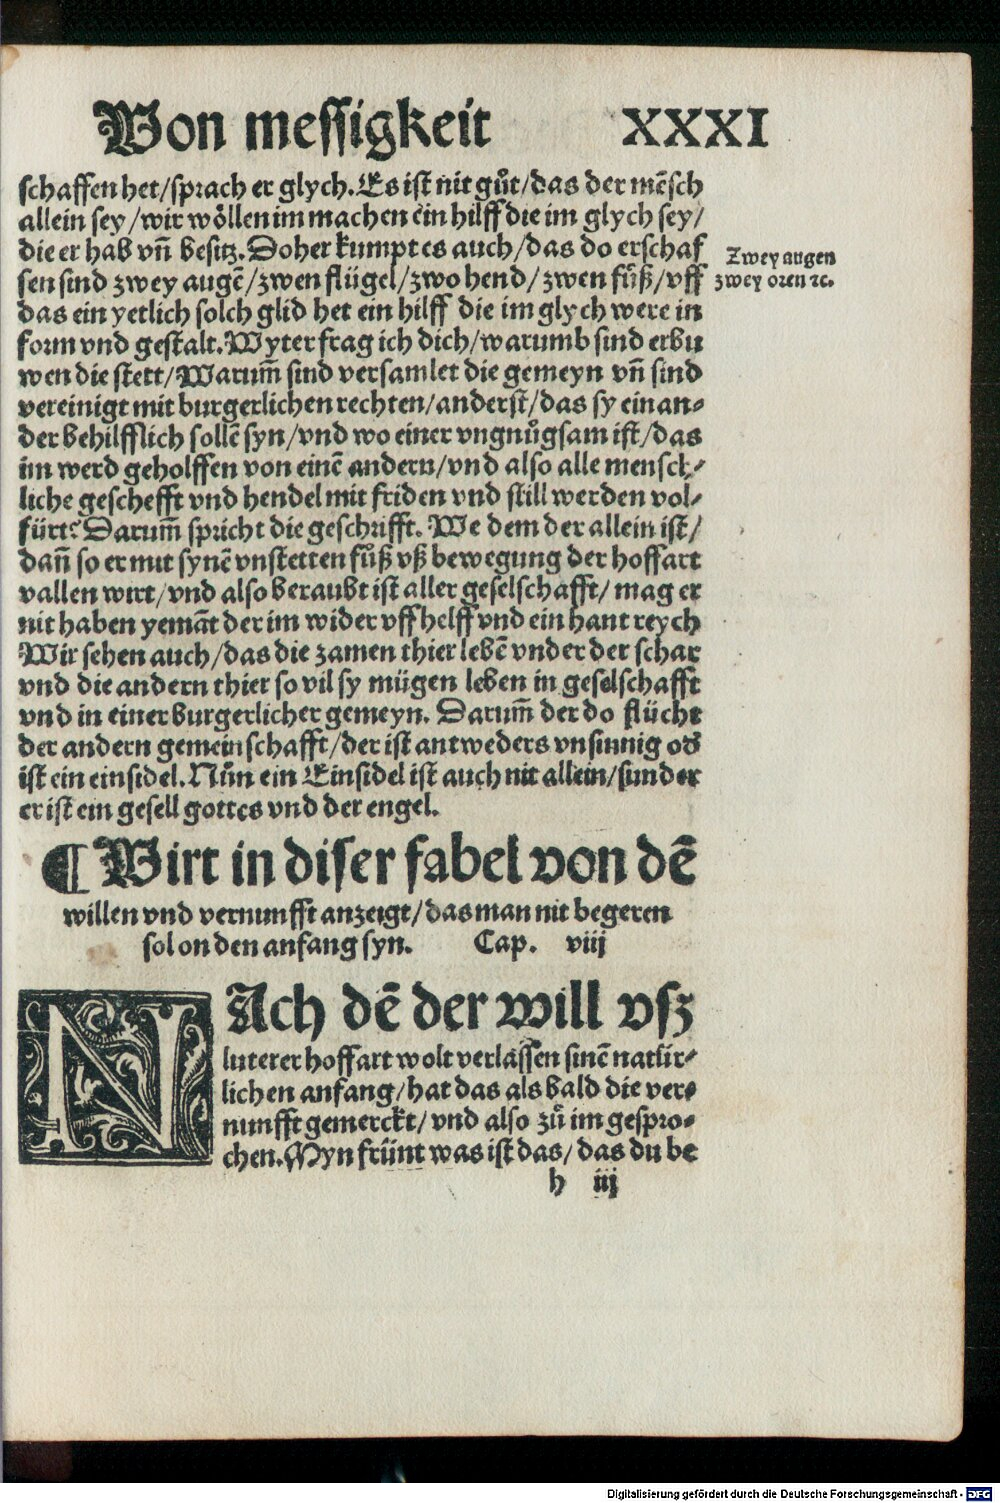 Von messigkeit XXXI
schaffen het/sprach er glych. Es ist nit gůt/das der mẽsch
allein sey/wir wöllen im machen ein hilff die im glych sey/
die er hab vñ besitz. Doher kumpt es auch/das do erschaf
Zwey augen
sen sind zwey augẽ/zwen flügel/zwo hend/zwen fůß/vff
zwey oren ꝛc.
das ein yetlich solch glid het ein hilff die im glych were in
form vnd gestalt. Wyter frag ich dich/warumb sind erbu
wen die stett/Warum̃ sind versamlet die gemeyn vñ sind
vereinigt mit burgerlichen rechten/anderst/das sy ein an⸗
der behilfflich sollẽ syn/vnd wo einer vngnůgsam ist/das
im werd geholffen von einẽ andern/vnd also alle mensch⸗
liche geschefft vnd hendel mit friden vnd still werden vol⸗
fürt? Darum̃ spricht die geschrifft. We dem der allein ist/
dañ so er mit synẽ vnstetten fůß vß bewegung der hoffart
vallen wirt/vnd also beraubt ist aller geselschafft/mag er
nit haben yemãt der im wider vff helff vnd ein hant reych
Wir sehen auch/das die zamen thier lebẽ vnder der schar
vnd die andern thier so vil sy mügen leben in geselschafft
vnd in einer burgerlicher gemeyn. Darum̃ der do flücht
der andern gemeinschafft/der ist antweders vnsinnig od̾
ist ein einsidel. Nůn ein Einsidel ist auch nit allein/sunder
er ist ein gesell gottes vnd der engel.
¶ Wirt in diser fabel von dẽ
willen vnd vernunfft anzeigt/das man nit begeren
sol on den anfang syn. Cap. viij
NAch dẽ der will vsz
luterer hoffart wolt verlassen sinẽ natür⸗
lichen anfang/hat das als bald die ver⸗
nunfft gemerckt/vnd also zů im gespro⸗
chen. Myn frünt was ist das/das du be
h iij
Digitalisierung gefördert durch die Deutsche Forschungsgemeinschaft - DFG